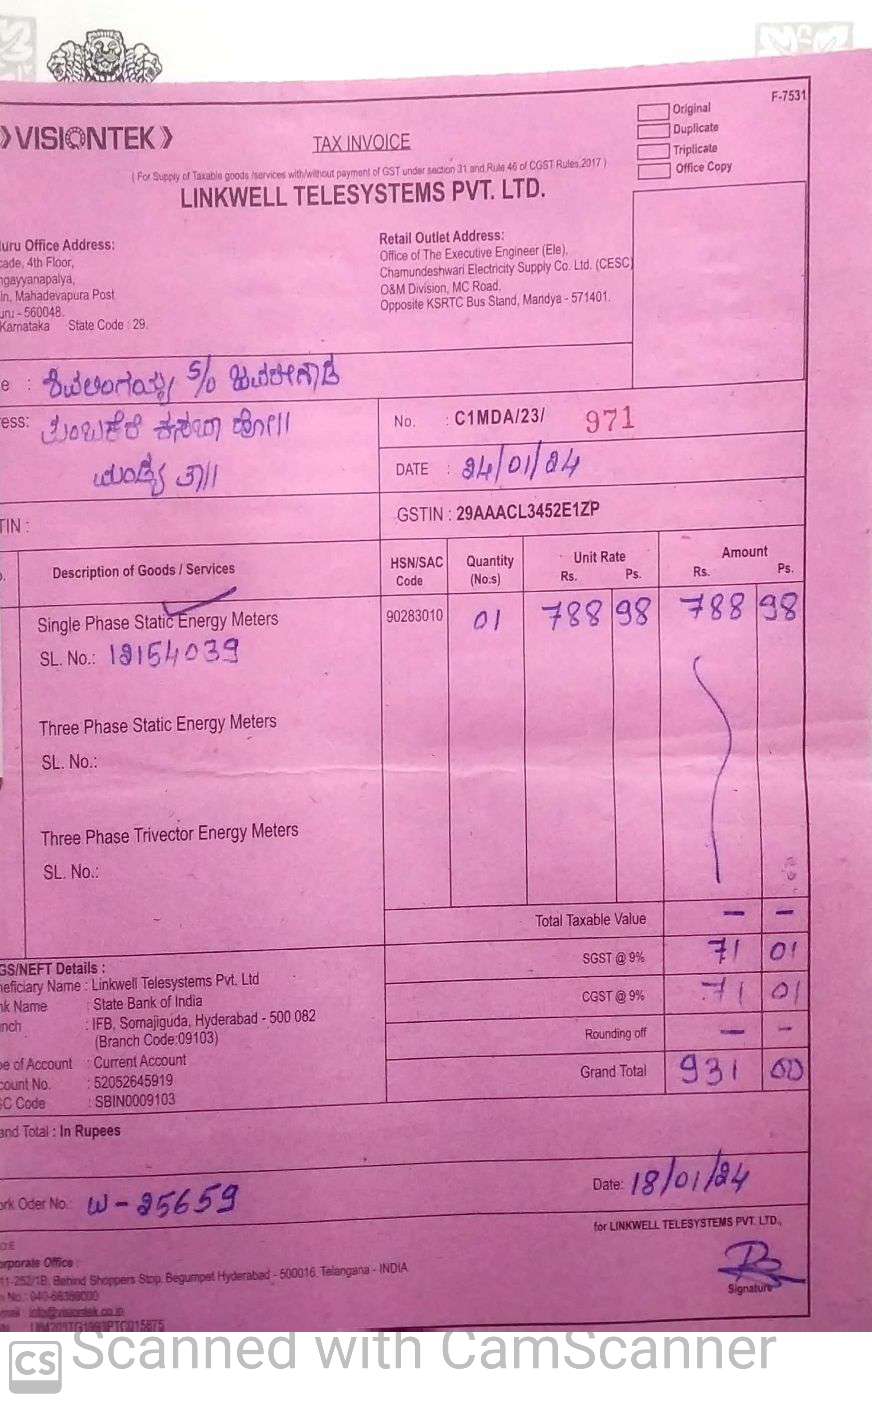 F-7531
Original
Duplicate
Triplicate
Office Copy
VISIONTEK
TAX INVOICE
( For Supply of Taxable goods /services with/without payment of GST under section 31 and Rule 46 of CGST Rules,2017 )
LINKWELL TELESYSTEMS PVT. LTD.
uru Office Address:
cade, 4th Floor,
ngayyanapalya,
in, Mahadevapura Post
uru - 560048.
Karnataka State Code : 29.
Retail Outlet Address:
Office of The Executive Engineer (Ele),
Chamundeshwari Electricity Supply Co. Ltd. (CESC)
O&M Division, MC Road,
Opposite KSRTC Bus Stand, Mandya - 571401.
e : ಶಿವಲಿಂಗಯ್ಯ S/o
ess: ತುಂಬಕೆರೆ ಕಸಬಾ ಹೋ||
ಮಂಡ್ಯ ತಾ||
No. : C1MDA/23/ 971
DATE : 24/01/24
TIN :
GSTIN : 29AAACL3452E1ZP
Description of Goods / Services
HSN/SAC Code
Quantity (No:s)
Unit Rate
Rs. Ps.
Amount
Rs. Ps.
Single Phase Static Energy Meters 90283010 01 788 98 788 98
SL. No.: 12154039
Three Phase Static Energy Meters
SL. No.:
Three Phase Trivector Energy Meters
SL. No.:
Total Taxable Value — —
SGST @ 9% 71 01
CGST @ 9% 71 01
Rounding off — –
Grand Total 931 00
GS/NEFT Details :
neficiary Name : Linkwell Telesystems Pvt. Ltd
nk Name : State Bank of India
nch : IFB, Somajiguda, Hyderabad - 500 082
(Branch Code:09103)
pe of Account : Current Account
count No. : 52052645919
SC Code : SBIN0009103
and Total : In Rupees
ork Oder No.: W-25659
Date: 18/01/24
for LINKWELL TELESYSTEMS PVT. LTD.,
Signature
orporate Office :
11-252/1B, Behind Shoppers Stop, Begumpet Hyderabad - 500016, Telangana - INDIA
n No.: 040-66388000
mail : info@visiontek.co.in
CS Scanned with CamScanner